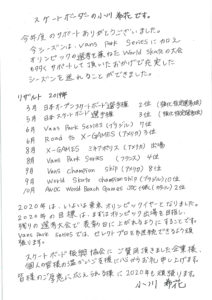 スケートボーダーの小川希花です。
今年度のサポートありがとうございました。
今シーズンは、Vans Park Seriesに加え
オリンピックの選考を兼ねたWorld Skateの大会
も多くサポートして頂いたおかげで充実した
シーズンを送れたことができました。
リザルト 2019年
3月 日本オープンスケートボード選手権 2位 (強化指定選手)
5月 日本スケートボード選手権
6月 Vans Park Series (ブラジル) 7位
6月 Road to X-GAMES (アメリカ) 3位
8月 X-GAMES ミネアポリス (アメリカ) 出場
8月 Vans Park Series (フランス) 4位
9月 Vans Champion ship (アメリカ) 8位
9月 World Skate championship (ブラジル) 10位
10月
2020年は、いよいよ東京オリンピックイヤーとなりました。
2020年の目標は、まずはオリンピック出場を目指し、
残りの選考大会で表彰台に上がれるようにすることです。
Vans Park Seriesでは、セレクトプロを挑戦できるよう頑
張ります。
スケートボード振興協会にご賛同頂きました企業様、
個人の皆様の温かいご支援に心からお礼申し上げます。
皆様のご厚意に応えられる様に2020年も頑張ります。
小川希花